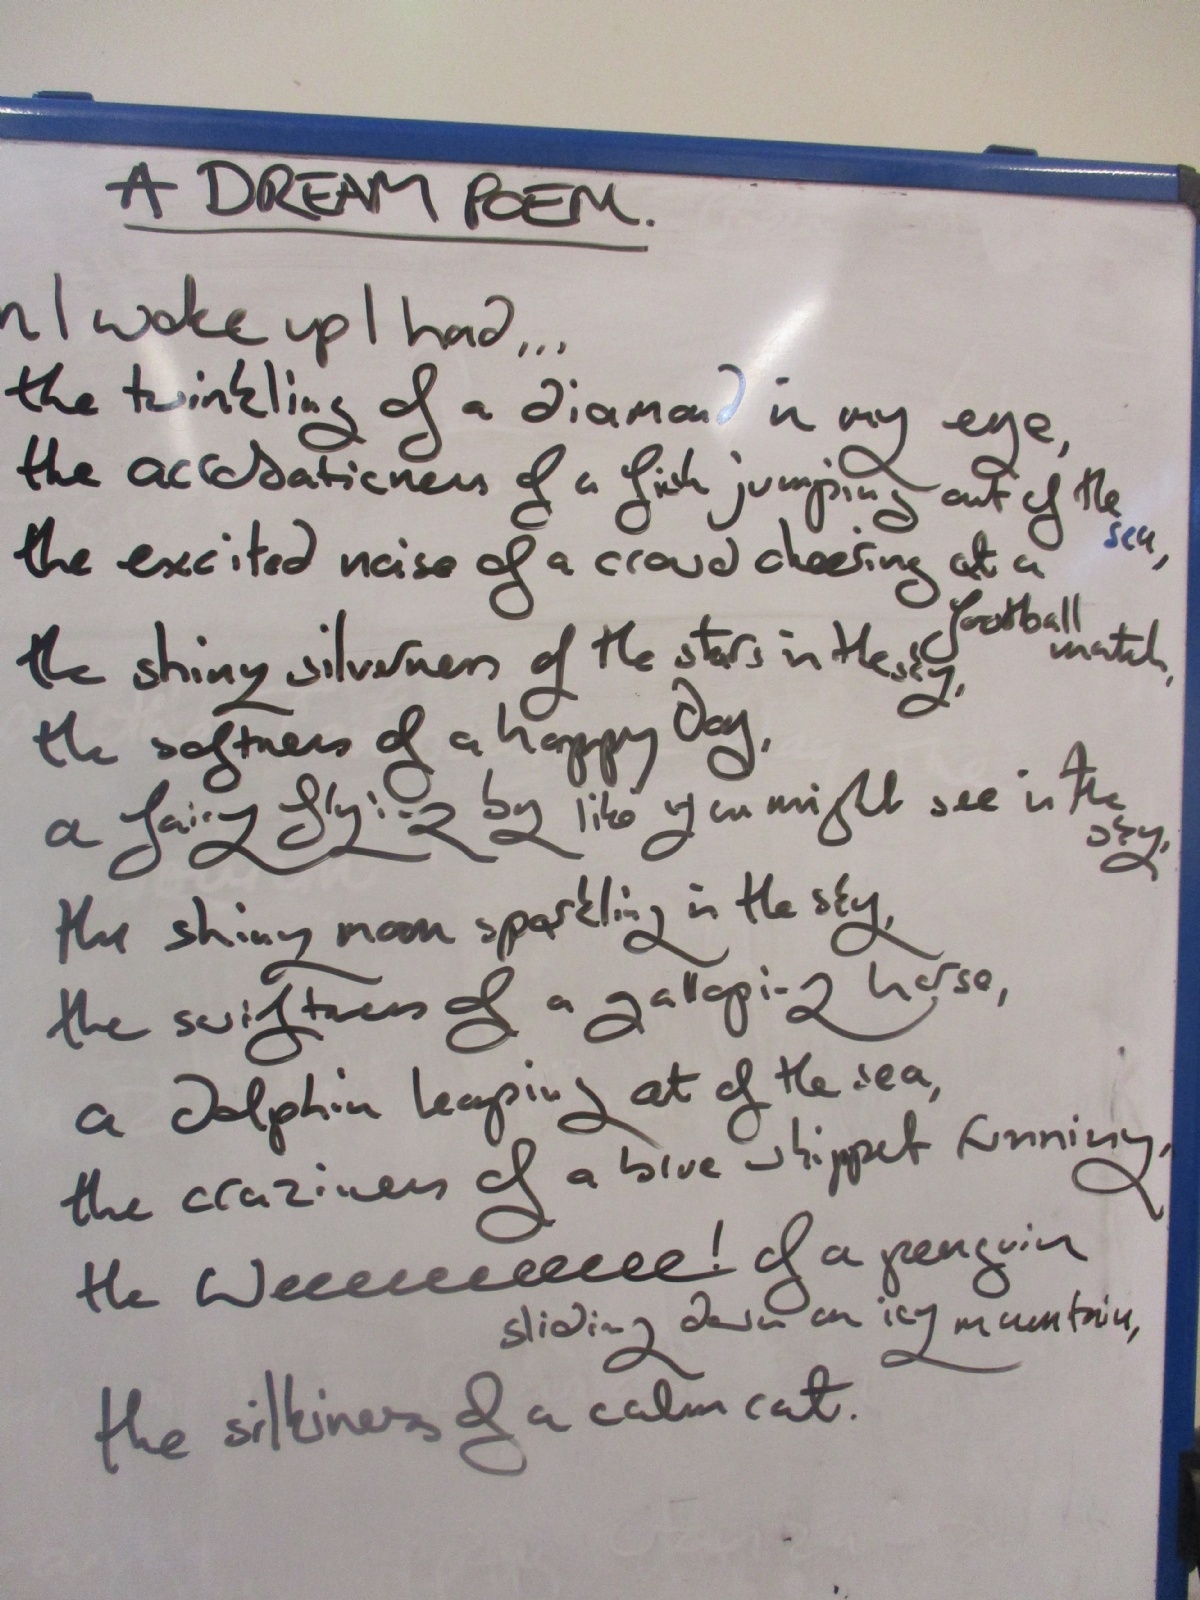 A DREAM POEM.
n I woke up I had...
the twinkling of a diamond in my eye,
the accrobaticness of a fish jumping out of the
sea,
the excited noise of a crowd cheering at a
football
match,
the shiny silverness of the stars in the sky,
the softness of a happy day,
a fairy flying by like you might see in the
sky,
the shiny moon sparkling in the sky,
the swiftness of a galloping horse,
a dolphin leaping out of the sea,
the craziness of a blue whippet running,
the Weeeeeeeeeee! of a penguin
sliding down an icy mountain,
the silkiness of a calm cat.